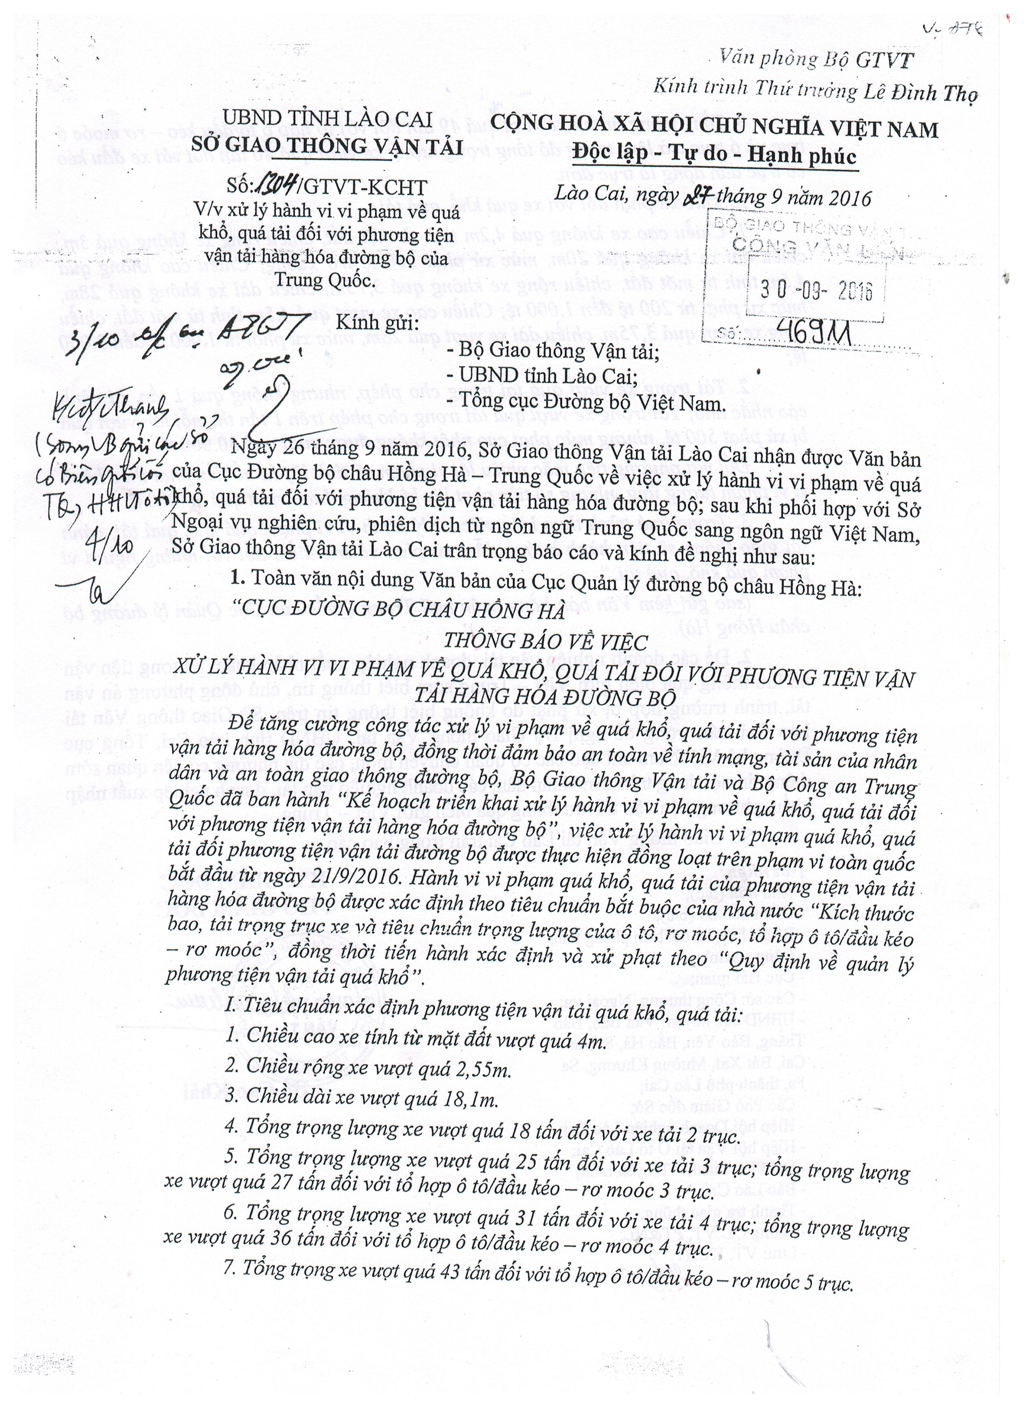 Văn phòng Bộ GTVT
Kính trình Thứ trưởng Lê Đình Thọ
UBND TỈNH LÀO CAI
SỞ GIAO THÔNG VẬN TẢI
CỘNG HOÀ XÃ HỘI CHỦ NGHĨA VIỆT NAM
Độc lập - Tự do - Hạnh phúc
Số: 1304/GTVT-KCHT
V/v xử lý hành vi vi phạm về quá
khổ, quá tải đối với phương tiện
vận tải hàng hóa đường bộ của
Trung Quốc.
Lào Cai, ngày 27 tháng 9 năm 2016
BỘ GIAO THÔNG VẬN T
CÔNG VĂN ĐẾN
30-09-2016
Số: 46911
3/10
Kính gửi:
- Bộ Giao thông Vận tải;
- UBND tỉnh Lào Cai;
- Tổng cục Đường bộ Việt Nam.
4/10
Ngày 26 tháng 9 năm 2016, Sở Giao thông Vận tải Lào Cai nhận được Văn bản
của Cục Đường bộ châu Hồng Hà – Trung Quốc về việc xử lý hành vi vi phạm về quá
khổ, quá tải đối với phương tiện vận tải hàng hóa đường bộ; sau khi phối hợp với Sở
Ngoại vụ nghiên cứu, phiên dịch từ ngôn ngữ Trung Quốc sang ngôn ngữ Việt Nam,
Sở Giao thông Vận tải Lào Cai trân trọng báo cáo và kính đề nghị như sau:
1. Toàn văn nội dung Văn bản của Cục Quản lý đường bộ châu Hồng Hà:
“CỤC ĐƯỜNG BỘ CHÂU HỒNG HÀ
THÔNG BÁO VỀ VIỆC
XỬ LÝ HÀNH VI VI PHẠM VỀ QUÁ KHỔ, QUÁ TẢI ĐỐI VỚI PHƯƠNG TIỆN VẬN
TẢI HÀNG HÓA ĐƯỜNG BỘ
Để tăng cường công tác xử lý vi phạm về quá khổ, quá tải đối với phương tiện
vận tải hàng hóa đường bộ, đồng thời đảm bảo an toàn về tính mạng, tài sản của nhân
dân và an toàn giao thông đường bộ, Bộ Giao thông Vận tải và Bộ Công an Trung
Quốc đã ban hành “Kế hoạch triển khai xử lý hành vi vi phạm về quá khổ, quá tải đối
với phương tiện vận tải hàng hóa đường bộ”, việc xử lý hành vi vi phạm quá khổ, quá
tải đối phương tiện vận tải đường bộ được thực hiện đồng loạt trên phạm vi toàn quốc
bắt đầu từ ngày 21/9/2016. Hành vi vi phạm quá khổ, quá tải của phương tiện vận tải
hàng hóa đường bộ được xác định theo tiêu chuẩn bắt buộc của nhà nước “Kích thước
bao, tải trọng trục xe và tiêu chuẩn trọng lượng của ô tô, rơ moóc, tổ hợp ô tô/đầu kéo
– rơ moóc”, đồng thời tiến hành xác định và xử phạt theo “Quy định về quản lý
phương tiện vận tải quá khổ”.
I. Tiêu chuẩn xác định phương tiện vận tải quá khổ, quá tải:
1. Chiều cao xe tính từ mặt đất vượt quá 4m.
2. Chiều rộng xe vượt quá 2,55m.
3. Chiều dài xe vượt quá 18,1m.
4. Tổng trọng lượng xe vượt quá 18 tấn đối với xe tải 2 trục.
5. Tổng trọng lượng xe vượt quá 25 tấn đối với xe tải 3 trục; tổng trọng lượng
xe vượt quá 27 tấn đối với tổ hợp ô tô/đầu kéo – rơ moóc 3 trục.
6. Tổng trọng lượng xe vượt quá 31 tấn đối với xe tải 4 trục; tổng trọng lượng
xe vượt quá 36 tấn đối với tổ hợp ô tô/đầu kéo – rơ moóc 4 trục.
7. Tổng trọng xe vượt quá 43 tấn đối với tổ hợp ô tô/đầu kéo – rơ moóc 5 trục.